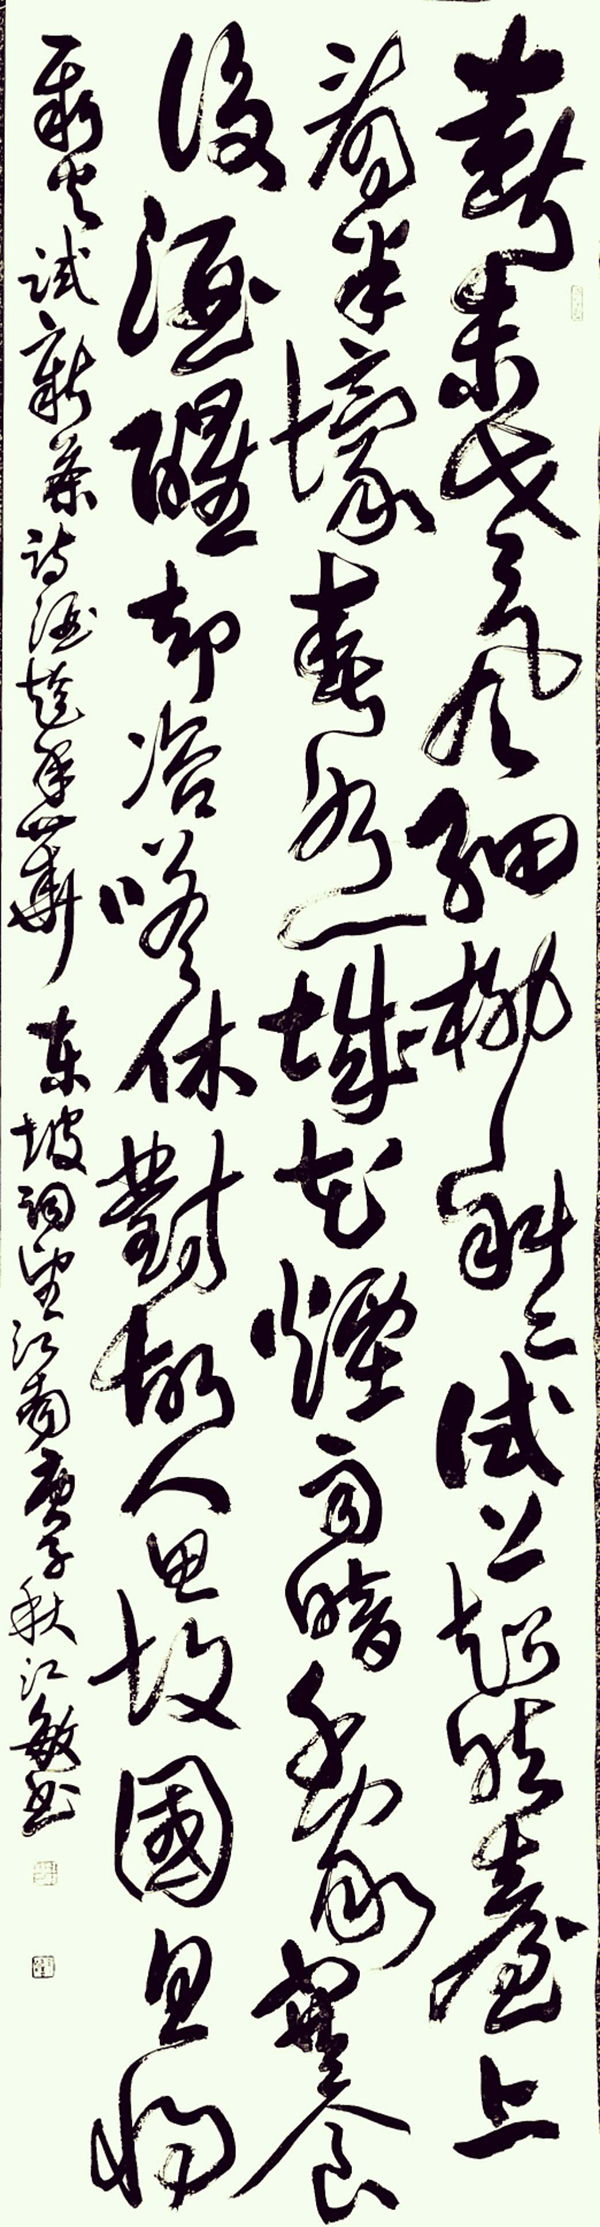 春未老風細柳斜々試上超然臺上
看半壕春水一城花煙雨暗千家寒食
後酒醒却咨嗟休對故人思故國且將
新火試新茶詩酒趁年華 东坡詞望江南庚子秋江敏书